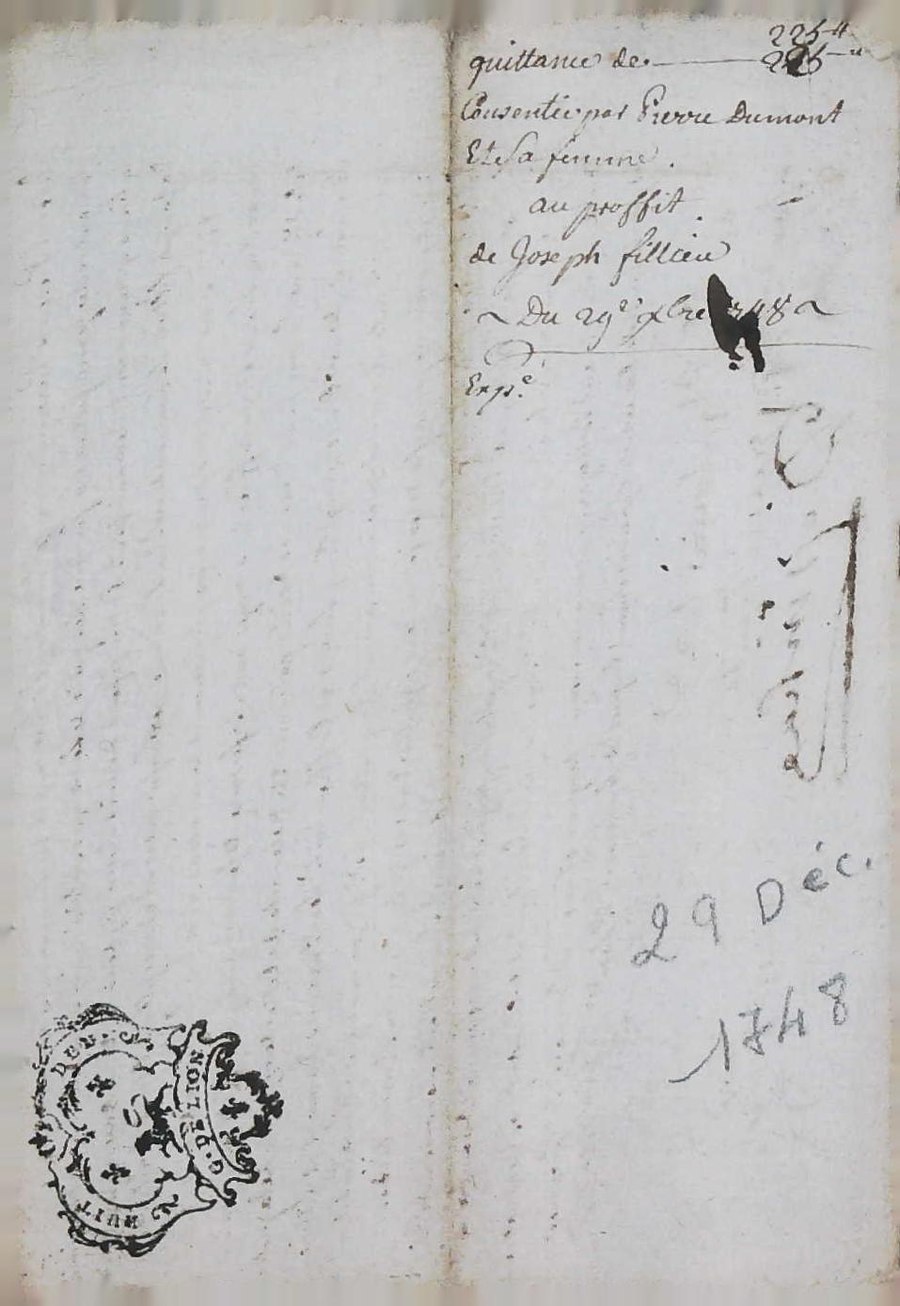 225 ℔
quittance de. — 225 ℔
Consentie par Pierre Dumont
Et sa femme.
au proffit
de Joseph fillieu
~ Du 29e xbre 1748 ~
Exp.e
29 Déc.
1748
G. DE LION
HUIT